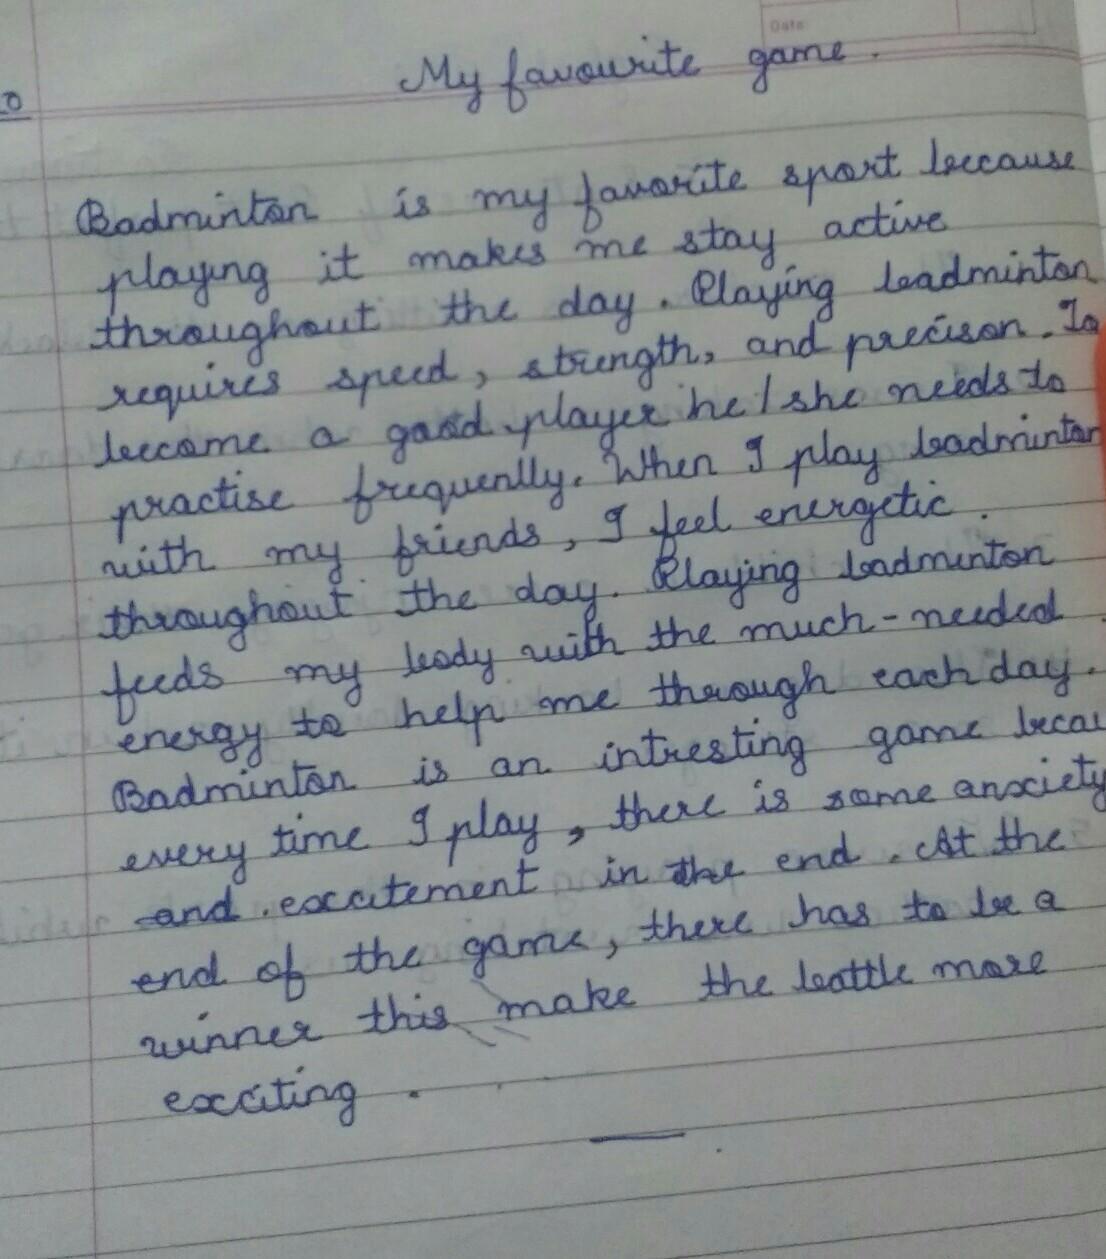 Date
My favourite game.
Badminton is my favorite sport because
playing it makes me stay active
throughout the day. Playing badminton
requires speed, strength, and precison. To
become a good player he/she needs to
practise frequently. When I play badminton
with my friends, I feel energetic.
throughout the day. Playing badminton
feeds my body with the much-needed
energy to help me through each day.
Badminton is an intresting game becau
every time I play, there is some anxiety
and excitement in the end. At the
end of the game, there has to be a
winner this make the battle more
exciting.